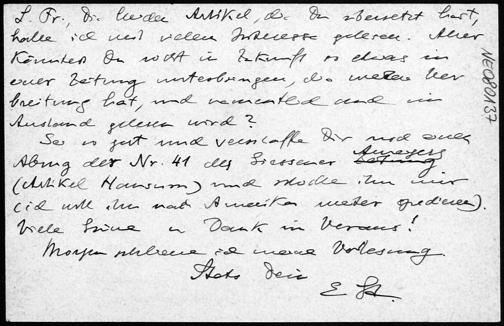 L. Fr., Die beiden Artikel, die Du übersetzt hast,
habe ich mit vielem Interesse gelesen. Aber
könntest Du nicht in Zukunft so etwas in
einer Zeitung unterbringen, die weitere Ver
breitung hat, und namentlich auch im
Ausland gelesen wird?
Sei so gut und verschaffe Dir noch einen
Abzug der Nr. 41 des Giessener Anzeigers
(Artikel Hamsun) und schicke ihn mir
(ich will ihn nach Amerika weiter spedieren).
Viele Grüsse u Dank im Voraus!
Morgen schliesse ich meine Vorlesung.
Stets Dein
E
NEO80137